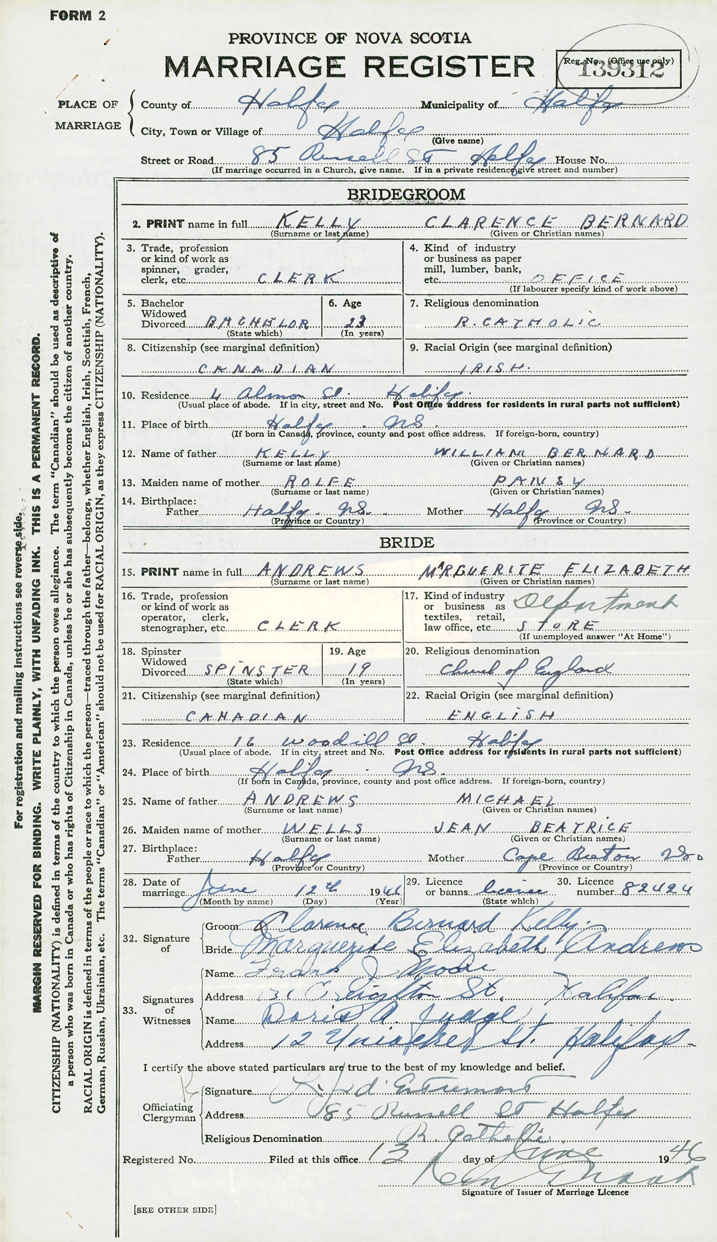 FORM 2
PROVINCE OF NOVA SCOTIA
MARRIAGE REGISTER
Reg. No. (Office use only)
139312
PLACE OF MARRIAGE
County of Halifax Municipality of Halifax
City, Town or Village of Halifax
(Give name)
Street or Road 85 Russell St Halifax House No.
(If marriage occurred in a Church, give name. If in a private residence give street and number)
BRIDEGROOM
2. PRINT name in full KELLY CLARENCE BERNARD
(Surname or last name) (Given or Christian names)
3. Trade, profession or kind of work as spinner, grader, clerk, etc. CLERK
4. Kind of industry or business as paper mill, lumber, bank, etc. OFFICE
(If labourer specify kind of work above)
5. Bachelor Widowed Divorced BACHELOR
(State which)
6. Age 23
(In years)
7. Religious denomination
R. CATHOLIC
8. Citizenship (see marginal definition)
CANADIAN
9. Racial Origin (see marginal definition)
IRISH.
10. Residence 4 Almon St. Halifax.
(Usual place of abode. If in city, street and No. Post Office address for residents in rural parts not sufficient)
11. Place of birth Halifax. NS.
(If born in Canada, province, county and post office address. If foreign-born, country)
12. Name of father KELLY WILLIAM BERNARD
(Surname or last name) (Given or Christian names)
13. Maiden name of mother ROLFE PANSY
(Surname or last name) (Given or Christian names)
14. Birthplace: Father Halifax NS. Mother Halifax NS.
(Province or Country) (Province or Country)
BRIDE
15. PRINT name in full ANDREWS MARGUERITE ELIZABETH
(Surname or last name) (Given or Christian names)
16. Trade, profession or kind of work as operator, clerk, stenographer, etc. CLERK
17. Kind of industry or business as textiles, retail, law office, etc. Department STORE
(If unemployed answer "At Home")
18. Spinster Widowed Divorced SPINSTER
(State which)
19. Age 19
(In years)
20. Religious denomination
Church of England
21. Citizenship (see marginal definition)
CANADIAN
22. Racial Origin (see marginal definition)
ENGLISH
23. Residence 16 Woodill St. Halifax
(Usual place of abode. If in city, street and No. Post Office address for residents in rural parts not sufficient)
24. Place of birth Halifax. NS.
(If born in Canada, province, county and post office address. If foreign-born, country)
25. Name of father ANDREWS MICHAEL
(Surname or last name) (Given or Christian names)
26. Maiden name of mother WELLS JEAN BEATRICE
(Surname or last name) (Given or Christian names)
27. Birthplace: Father Halifax Mother Cape Breton NS
(Province or Country) (Province or Country)
28. Date of marriage June 12th 1946
(Month by name) (Day) (Year)
29. Licence or banns licence
(State which)
30. Licence number 82424
32. Signature of
Groom Clarence Bernard Kelly.
Bride Marguerite Elizabeth Andrews
33. Signatures of Witnesses
Name Frank J
Address Creighton St, Halifax.
Name Doris A. Judge
Address 12 Uniacke St. Halifax-
I certify the above stated particulars are true to the best of my knowledge and belief.
Officiating Clergyman
Signature d'Entremont
Address 85 Russell St Halifax
Religious Denomination R. Catholic
Registered No. Filed at this office 13 day of June 1946
Signature of Issuer of Marriage Licence
[SEE OTHER SIDE]
For registration and mailing instructions see reverse side.
MARGIN RESERVED FOR BINDING. WRITE PLAINLY, WITH UNFADING INK. THIS IS A PERMANENT RECORD.
CITIZENSHIP (NATIONALITY) is defined in terms of the country to which the person owes allegiance. The term "Canadian" should be used as descriptive of
a person who was born in Canada or who has rights of Citizenship in Canada, unless he or she has subsequently become the citizen of another country.
RACIAL ORIGIN is defined in terms of the people or race to which the person—traced through the father—belongs, whether English, Irish, Scottish, French,
German, Russian, Ukrainian, etc. The terms "Canadian" or "American" should not be used for RACIAL ORIGIN, as they express CITIZENSHIP (NATIONALITY).